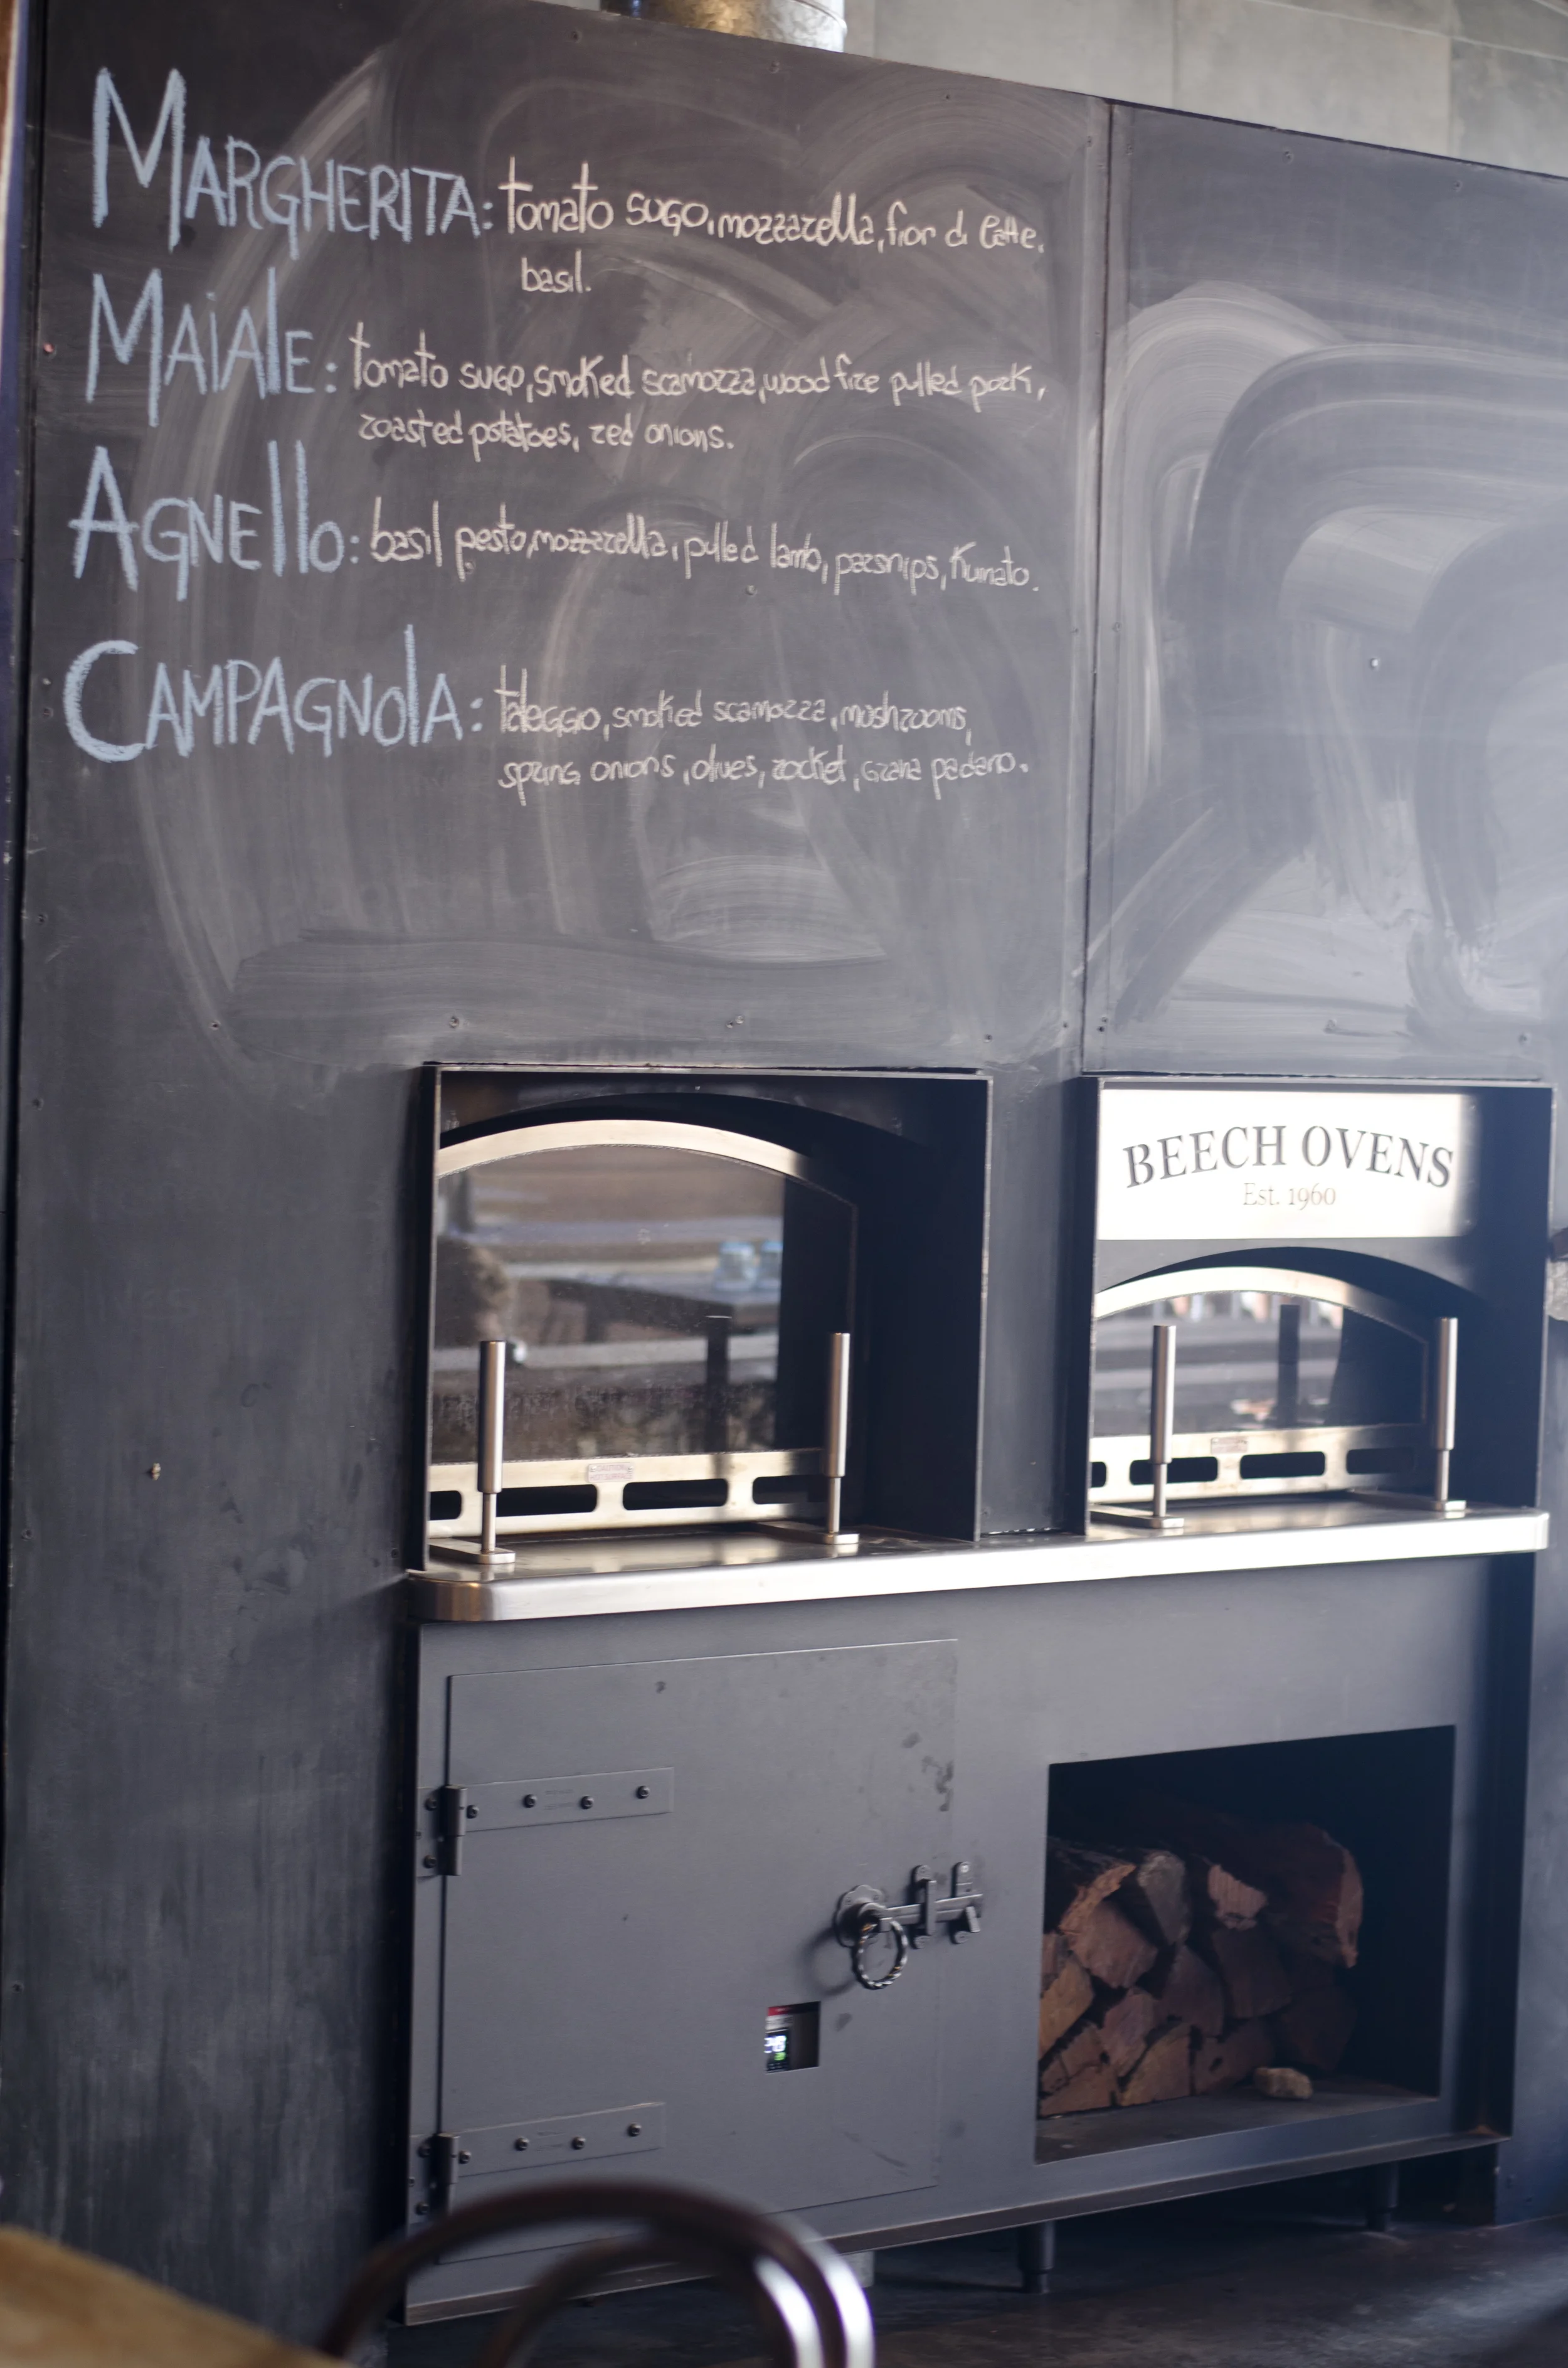 MARGHERITA: tomato sugo, mozzarella, fior di latte,
basil.
MAiAlE: tomato sugo, smoked scamozza, wood fire pulled pork,
roasted potatoes, red onions.
AGNEllo: basil pesto, mozzarella, pulled lamb, parsnips, Kumato.
CAMPAGNOlA: taleggio, smoked scamozza, mushrooms,
spring onions, olives, rocket, grana padano.
BEECH OVENS
Est. 1960